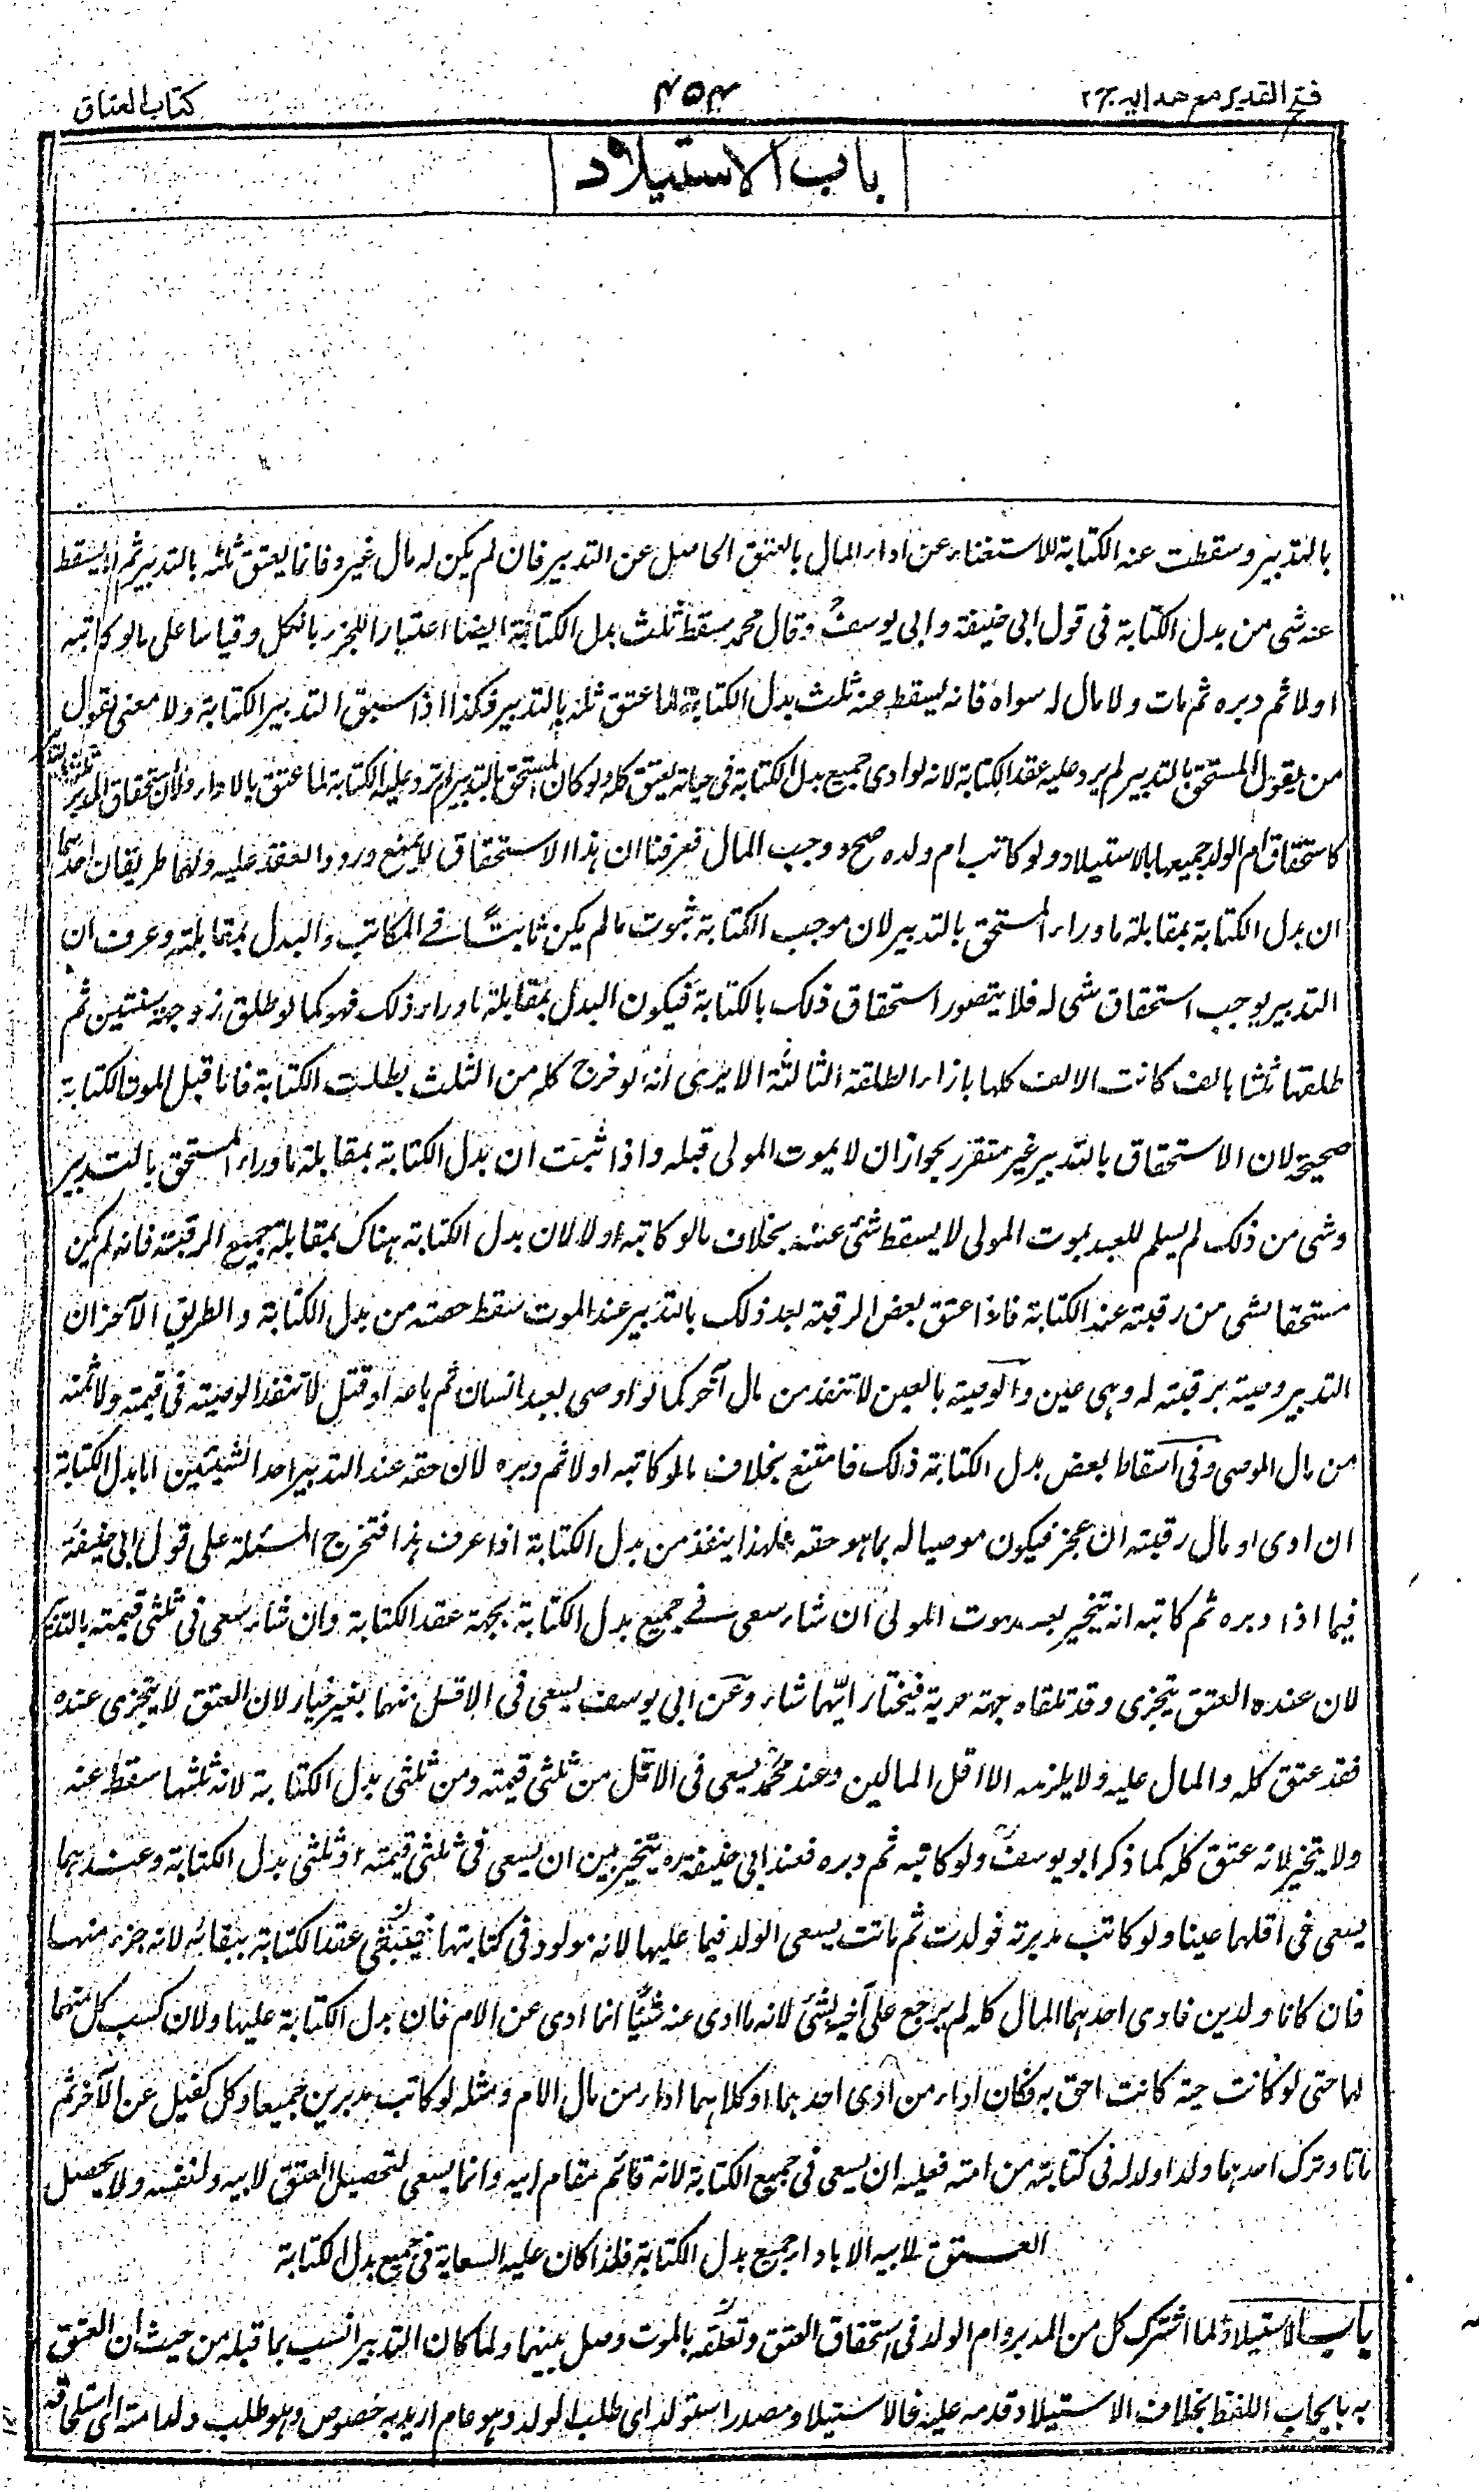 فتح القدیر مع هدایه ج ۲
۴۵۴
كتاب العتاق
باب الاستیلاد
بالتدبیر وسقطت عنه الكتابة للاستغناء عن اداء المال بالعتق الحاصل عن التدبیر فان لم یكن له مال غیره فانما یعتق ثلثه بالتدبیر ثم لا یسقط
عنه شی من بدل الكتابة فی قول ابی حنیفة وابی یوسف وقال محمد یسقط ثلث بدل الكتابة ایضا اعتبارا للجزء بالكل وقیاسا علی ما لو كاتبه
اولا ثم دبره ثم مات ولا مال له سواه فانه یسقط عنه ثلث بدل الكتابة لما عتق ثلثه بالتدبیر فكذا اذا سبق التدبیر الكتابة ولا معنی لقول
من یقول المستحق بالتدبیر لم یرد علیه عقد الكتابة لانه لو ادی جمیع بدل الكتابة فی حیاته یعتق كله ولو كان المستحق بالتدبیر لم یرد علیه الكتابة لما عتق بالاداء ولان استحقاق المدبر
كاستحقاق ام الولد جمیعها بالاستیلاد ولو كاتب ام ولده صح ووجب المال فعرفنا ان هذا الاستحقاق لا یمنع ورود العقد علیه ولهما طریقان احدهما
ان بدل الكتابة بمقابلة ما وراء المستحق بالتدبیر لان موجب الكتابة ثبوت ما لم یكن ثابتًا فے المكاتب والبدل بمقابلته وعرف ان
التدبیر یوجب استحقاق شی له فلا یتصور استحقاق ذلك بالكتابة فیكون البدل بمقابلة ما وراء ذلك فهو كما لو طلق زوجته ثنتین ثم
طلقها ثلثا بالف كانت الالف كلها بازاء الطلقة الثالثة الا یری انه لو خرج كله من الثلث بطلت الكتابة فاما قبل الموت الكتابة
صحیحة لان الاستحقاق بالتدبیر غیر متقرر بجواز ان لا یموت المولی قبله واذا ثبت ان بدل الكتابة بمقابلة ما وراء المستحق بالتدبیر
وشی من ذلك لم یسلم للعبد بموت المولی لا یسقط شئ عنه بخلاف ما لو كاتبه اولا لان بدل الكتابة هناك بمقابلة جمیع الرقبة فانه لم یكن
مستحقا لشی من رقبته عند الكتابة فاذا عتق بعض الرقبة بعد ذلك بالتدبیر عند الموت سقط حصته من بدل الكتابة والطریق الآخر ان
التدبیر وصیة برقبته له وهی عین والوصیة بالعین لا تنفذ من مال آخر كما لو اوصی بعبد لانسان ثم باعه او قتل لا تنفذ الوصیة فی قیمته ولا ثمنه
من مال الموصی وفی اسقاط بعض بدل الكتابة ذلك فامتنع بخلاف ما لو كاتبه اولا ثم دبره لان حقه عند التدبیر احد الشیئین اما بدل الكتابة
ان ادی او مال رقبته ان عجز فیكون موصیا له بما هو حقه فلهذا ینفذ من بدل الكتابة اذا عرف هذا فتخرج المسئلة علی قول ابی حنیفة
فیما اذا دبره ثم كاتبه انه یتخیر بعد موت المولی ان شاء سعی فے جمیع بدل الكتابة بجهة عقد الكتابة وان شاء سعی فی ثلثی قیمته بالتدبیر
لان عنده العتق یتجزی وقد تلقاه جهة حریة فیختار ایهما شاء وعن ابی یوسف یسعی فی الاقل منهما بغیر خیار لان العتق لا یتجزی عنده
فقد عتق كله والمال علیه ولا یلزمه الا اقل المالین وعند محمد یسعی فی الاقل من ثلثی قیمته ومن ثلثی بدل الكتابة لانه ثلثها سقط عنه
ولا یتخیر لانه عتق كله كما ذكر ابو یوسف ولو كاتبه ثم دبره فعند ابی حنیفة ره یتخیر بین ان یسعی فی ثلثی قیمته او ثلثی بدل الكتابة وعندهما
یسعی فی اقلهما عینا ولو كاتب مدبرته فولدت ثم ماتت یسعی الولد فیما علیها لانه مولود فی كتابتها فیبقی عقد الكتابة ببقائه لانه جزء منها
فان كانا ولدین فادی احدهما المال كله لم یرجع علی اخیه بشئ لانه ما ادی عنه شیئًا انما ادی عن الام فان بدل الكتابة علیها ولان كسب كل منهما
لها حتی لو كانت حیة كانت احق به فكان اداء من ادی احدهما او كلاهما اداء من مال الام ومثله لو كاتب مدبرین جمیعا وكل كفیل عن الآخر ثم
ماتا وترك احدهما ولدا ولد له فی كتابته من امته فعلیه ان یسعی فی جمیع الكتابة لانه قائم مقام ابیه وانما یسعی لتحصیل العتق لابیه ولنفسه ولا یحصل
العتق لابیه الا باداء جمیع بدل الكتابة فلذا كان علیه السعایة فی جمیع بدل الكتابة
باب الاستیلاد لما اشترك كل من المدبر وام الولد فی استحقاق العتق وتعلقه بالموت وصل بینهما ولما كان التدبیر انسب بما قبله من حیث ان العتق
به بایجاب اللفظ بخلاف الاستیلاد قدمه علیه فالاستیلاد مصدر استولد ای طلب الولد وهو عام ارید به خصوص وهو طلب ولد امته ای استلحاقه